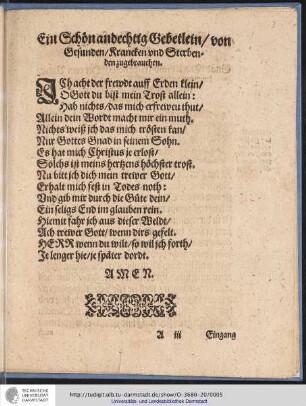 Ein Schön andechtig Gebetlein/ von
Gesunden/ Krancken vnd Sterben-
den zugebrauchen.
ICh acht der frewdt auff Erden klein/
O Gott du bist mein Trost allein:
Hab nichts/ das mich erfrewen thut/
Allein dein Wordt macht mir ein muth.
Nichts weiß ich das mich trösten kan/
Nur Gottes Gnad in seinem Sohn.
Es hat mich Christus je erlost/
Solchs ist meins hertzens höchster trost.
Nu bitt ich dich mein trewer Gott/
Erhalt mich fest in Todes noth:
Vnd gib mir durch die Güte dein/
Ein seligs End im glauben rein.
Hiemit fahr ich aus dieser Weldt/
Ach trewer Gott/ wenn dirs gefelt.
HERR wenn du wilt/ so wil ich forth/
Je lenger hie/ je später dordt.
A M E N.
A iii Eingang
TECHNISCHE
UNIVERSITÄT
DARMSTADT
http://tudigit.ulb.tu-darmstadt.de/show/O-3680-20/0005
Universitäts- und Landesbibliothek Darmstadt